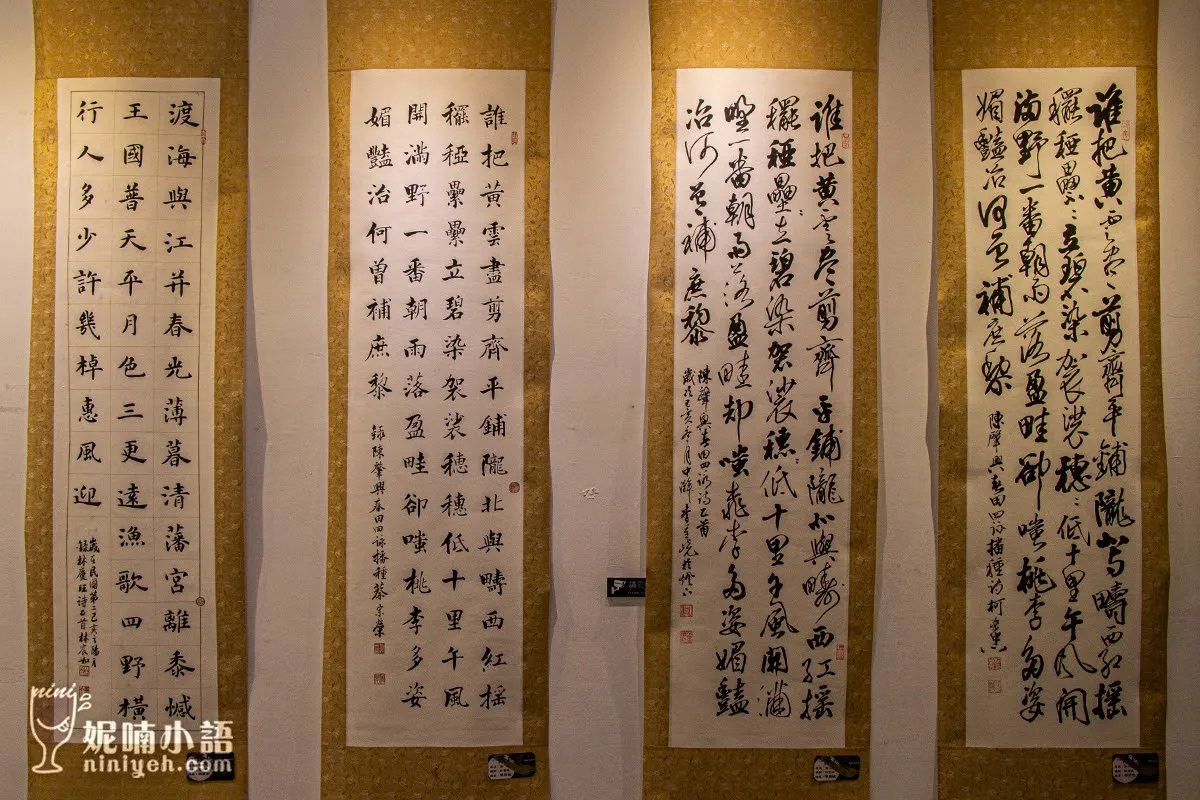 渡海與江并春光薄暮清藩宮離黍憾
王國普天平月色三更遠漁歌四野橫
行人多少許幾棹惠風迎
歲在民國第二己亥之陽月
錄林慶旺詩乙首林宸如
誰把黃雲盡剪齊平鋪隴北與疇西紅搖
穲稏纍纍立碧染袈裟穗穗低十里午風
開滿野一番朝雨落盈畦卻嗤桃李多姿
媚豔冶何曾補庶黎
錄陳肇興春田四詠播種蔡宗榮
誰把黃雲盡剪齊平鋪隴北與疇西紅搖
穲稏壘壘立碧染袈裟穗穗低十里午風開滿
野一番朝雨落盈畦却嗤桃李多姿媚豔
冶何曾補庶黎
陳肇興春田四詠詩乙首
誰把黃雲盡剪齊平鋪隴北與疇西紅搖
穲稏壘壘立碧染袈裟穗穗低十里午風開
滿野一番朝雨落盈畦卻嗤桃李多姿
媚豔冶何曾補庶黎
陳肇興春田四詠播種詩
nini
妮喃小語
niniyeh.com